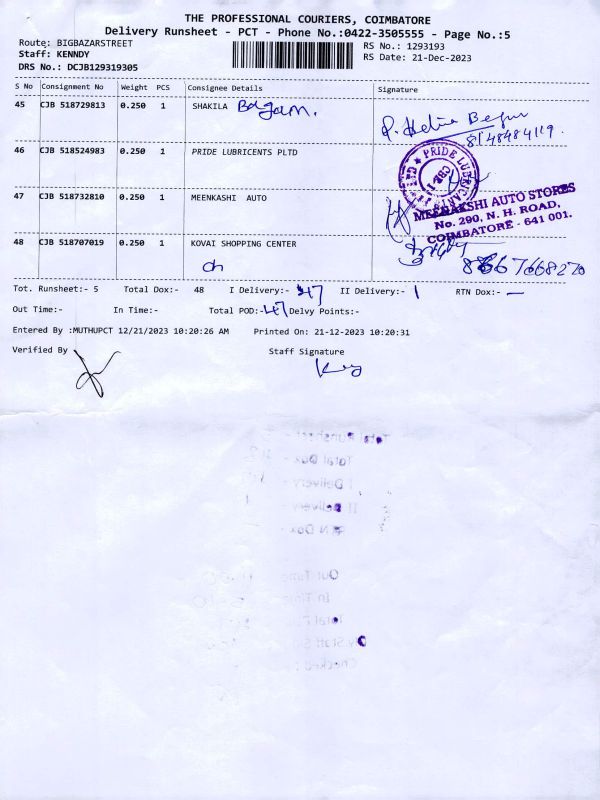 THE PROFESSIONAL COURIERS, COIMBATORE
Delivery Runsheet - PCT - Phone No.:0422-3505555 - Page No.:5
Route: BIGBAZARSTREET
Staff: KENNDY
DRS No.: DCJB129319305
RS No.: 1293193
RS Date: 21-Dec-2023
S No Consignment No Weight PCS Consignee Details Signature
45 CJB 518729813 0.250 1 SHAKILA Begam.
Begum
46 CJB 518524983 0.250 1 PRIDE LUBRICENTS PLTD
PRIDE LUBRICANTS
CBE-1
47 CJB 518732810 0.250 1 MEENKASHI AUTO
MEENAKSHI AUTO STORES
No. 290, N. H. ROAD,
COIMBATORE - 641 001.
48 CJB 518707019 0.250 1 KOVAI SHOPPING CENTER
ch
Tot. Runsheet:- 5 Total Dox:- 48 I Delivery:- 47 II Delivery:- 1 RTN Dox:- —
Out Time:- In Time:- Total POD:- 47 Delvy Points:-
Entered By :MUTHUPCT 12/21/2023 10:20:26 AM Printed On: 21-12-2023 10:20:31
Verified By Staff Signature